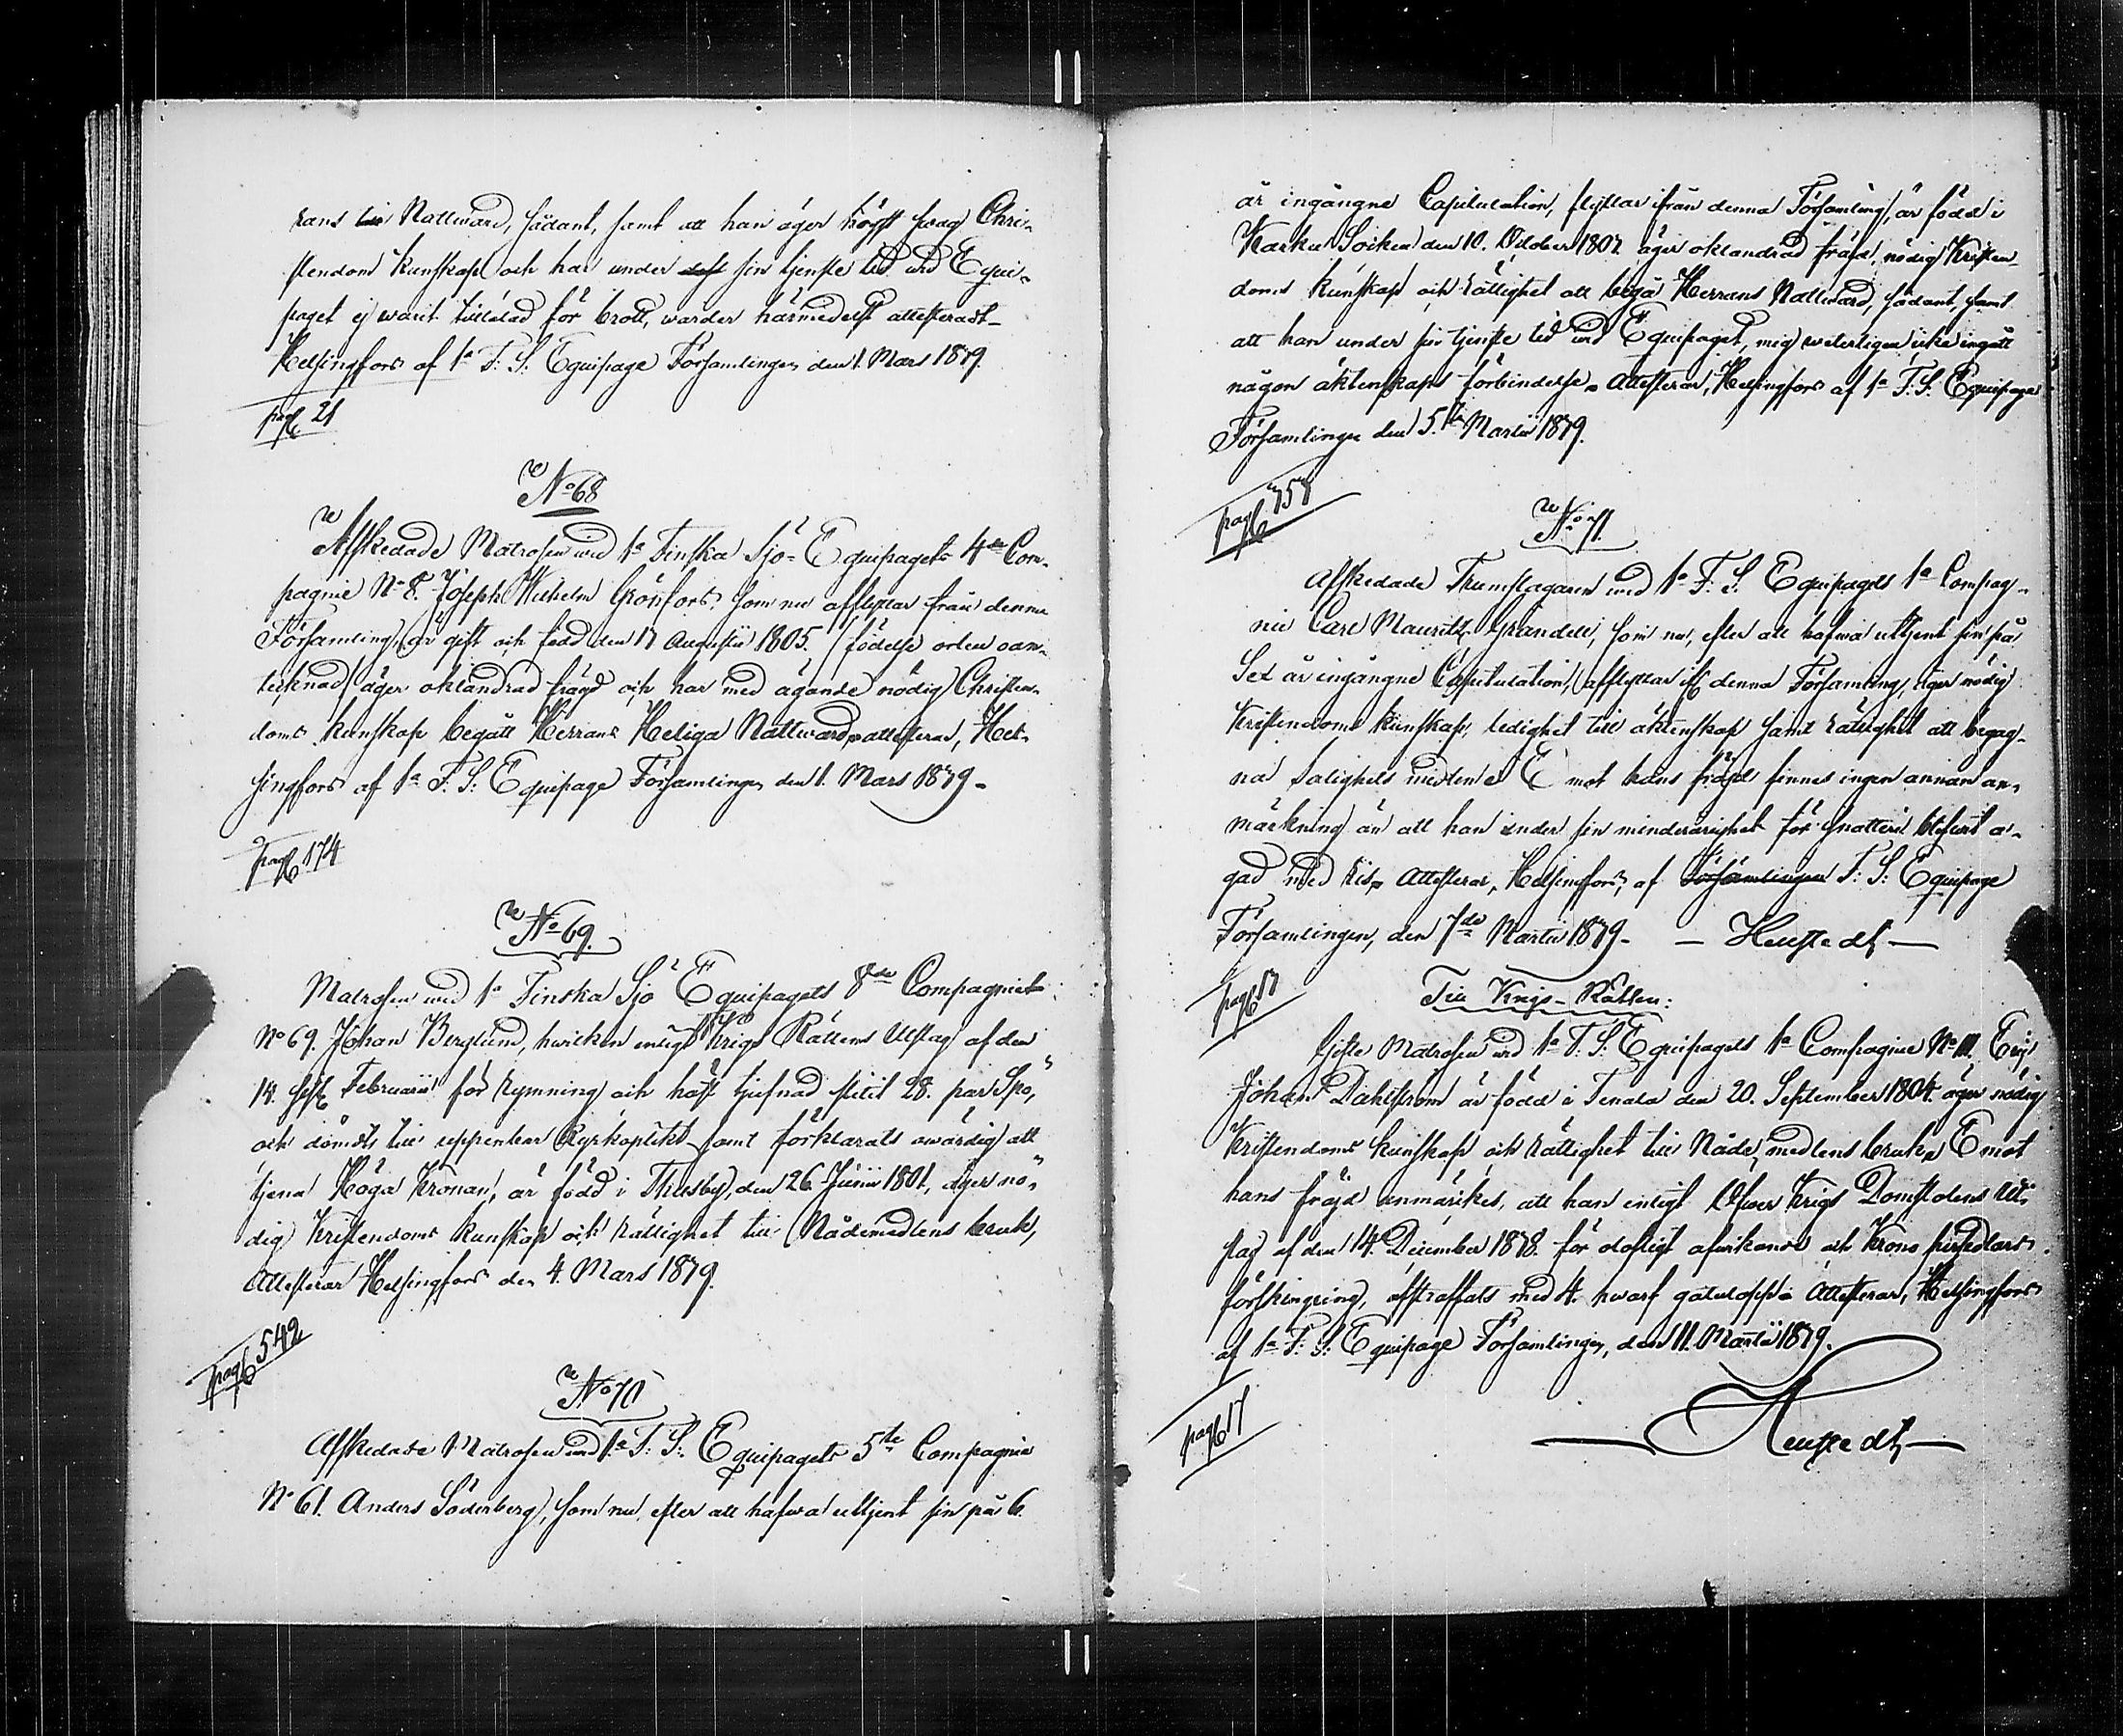 rans Nattward, sådant, samt att han äger högst swag Chri-
stendoms kunskap och har under sin tjenste tid wid Equi-
paget ej warit tilltalad för brott, warder härmedelst attesteradt
Helsingfors af 1a F: S: Equipage Församlingen den 1. Mars 1839.
pag 21
No 68
Afskedade Matrosen wid 1a Finska Sjö-Equipagets 4de Com-
pagnie No 8. Joseph Wilhelm Grönfors, som nu afflyttar från denna
Församling, är gift och född den 17 Augustii 1805. (födelse orten oan-
tecknad) äger oklandrad fräjd och har med ägande nödig Christen-
doms kunskap begått Herrans Heliga Nattward, attesterar, Hel-
singfors af 1a F: S: Equipage Församlingen den 1. Mars 1839.
pag 174
No 69.
Matrosen wid 1a Finska Sjö Equipagets 8de Compagniet
No 69. Johan Berglund, hwilken enligt Krigs Rättens Utslag af den
14. Februarii för rymning och häst tjufnad slitit 28. par Spö,
och dömdts till uppenbar Kyrkoplikt samt förklarats owärdig att
tjena Höga Kronan, är född i Thusby, den 26. Junii 1801, äger nö-
dig Kristendoms kunskap och rättighet till Nådemedlens bruk,
Attesterar Helsingfors den 4. Mars 1839.
pag 542
No 70
Afskedade Matrosen wid 1a F: S: Equipagets 5te Compagnie
No 61. Anders Söderberg, som nu, efter att hafwa uttjent sin på 6.
år ingångne Capitulation, flyttar ifrån denna Församling, är född i
Karku Socken den 10. October 1807. äger oklandrad fräjd, nödig Kristen-
doms kunskap och rättighet att begå Herrans Nattward, sådant, samt
att han under sin tjenste tid wid Equipaget, mig weterligen icke ingått
någon äktenskaps förbindelse, Attesterar, Helsingfors af 1a F: S: Equipage
Församlingen den 5. Martii 1839.
pag 758
No 71.
Afskedade Trumslagaren wid 1a F: S: Equipagets 1a Compag-
nie Carl Mauritz Grandell, som nu, efter att hafwa uttjent sin på
Sex år ingångne Capitulation, afflyttar denna Församling, äger nödig
Kristendoms kunskap, ledighet till äktenskap samt rättighet att begag-
na Salighets medlen. E mot hans fräjd finnes ingen annan an-
märkning än att han under sin minderårighet för snatteri blifwit a-
gad med ris. Attesterar, Helsingfors, af Församlingen F: S: Equipage
Församlingen, den 7de Martii 1839.
pag 17
Till Krigs-Rätten:
Gifte Matrosen wid 1a F: S: Equipagets 1a Compagnie No 111.
Johan Dahlström är född i Tenala den 20. September 1804. äger nödig
Kristendoms kunskap och rättighet till Nåde medlens bruk. E mot
hans fräjd anmärkes, att han enligt Öfwer Krigs Domstolens Ut-
slag af den 14. December 1838. för olofligt afwikande och Krono persedlars
förskingring, afstraffats med 4. hwarf gatulopp. Attesterar, Helsingfors
af 1a F: S: Equipage Församlingen, den 11. Martii 1839.
pag 17